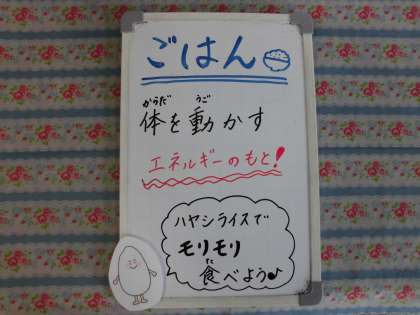 ごはん
からだ うご
体を動かす
エネルギーのもと!
ハヤシライスで
モリモリ
た
食べよう♪